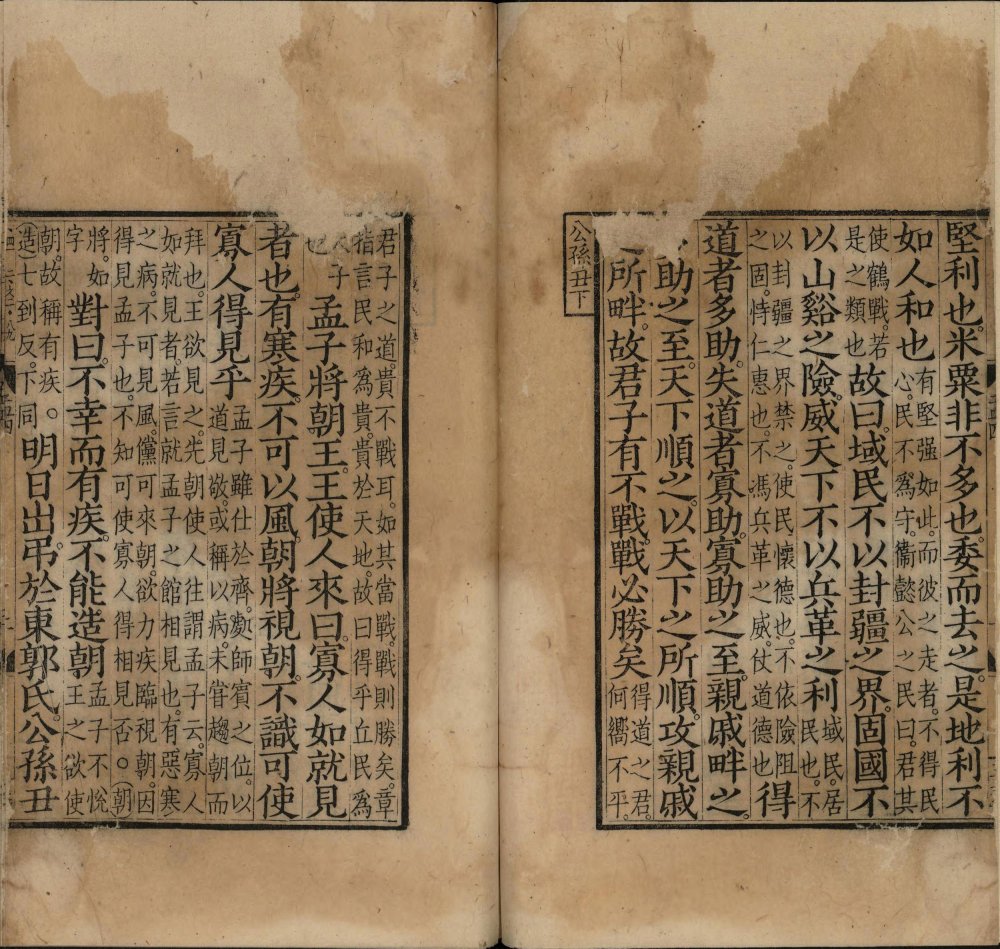 堅利也。米粟非不多也。委而去之。是地利不
如人和也有堅强如此。而彼之走者。不得民心。民不爲守。衞懿公之民曰。君其
使鶴戰。若是之類也故曰。域民不以封疆之界。固國不
以山谿之險。威天下不以兵革之利域民。居民也。不
以封疆之界禁之。使民懷德也。不依險阻之固。恃仁惠也。不馮兵革之威。仗道德也得
道者多助。失道者寡助。寡助之至。親戚畔之。
助之至。天下順之。以天下之所順。攻親戚
所畔。故君子有不戰。戰必勝矣得道之君。何嚮不平。
公孫丑下
君子之道。貴不戰耳。如其當戰。戰則勝矣。章指言民和爲貴。貴於天地。故曰得乎丘民爲
子也孟子將朝王。王使人來曰。寡人如就見
者也。有寒疾。不可以風。朝將視朝。不識可使
寡人得見乎孟子雖仕於齊。處師賓之位。以道見敬。或稱以病。未甞趨朝而
拜也。王欲見之。先朝使人往謂孟子云。寡人如就見者。若言就孟子之館相見也。有惡寒
之病。不可見風。儻可來朝。欲力疾臨視朝。因得見孟子也。不知可使寡人得相見否。○朝
將。如字對曰。不幸而有疾。不能造朝孟子不悅王之欲使
朝。故稱有疾。造七到反。下同明日出弔。於東郭氏。公孫丑